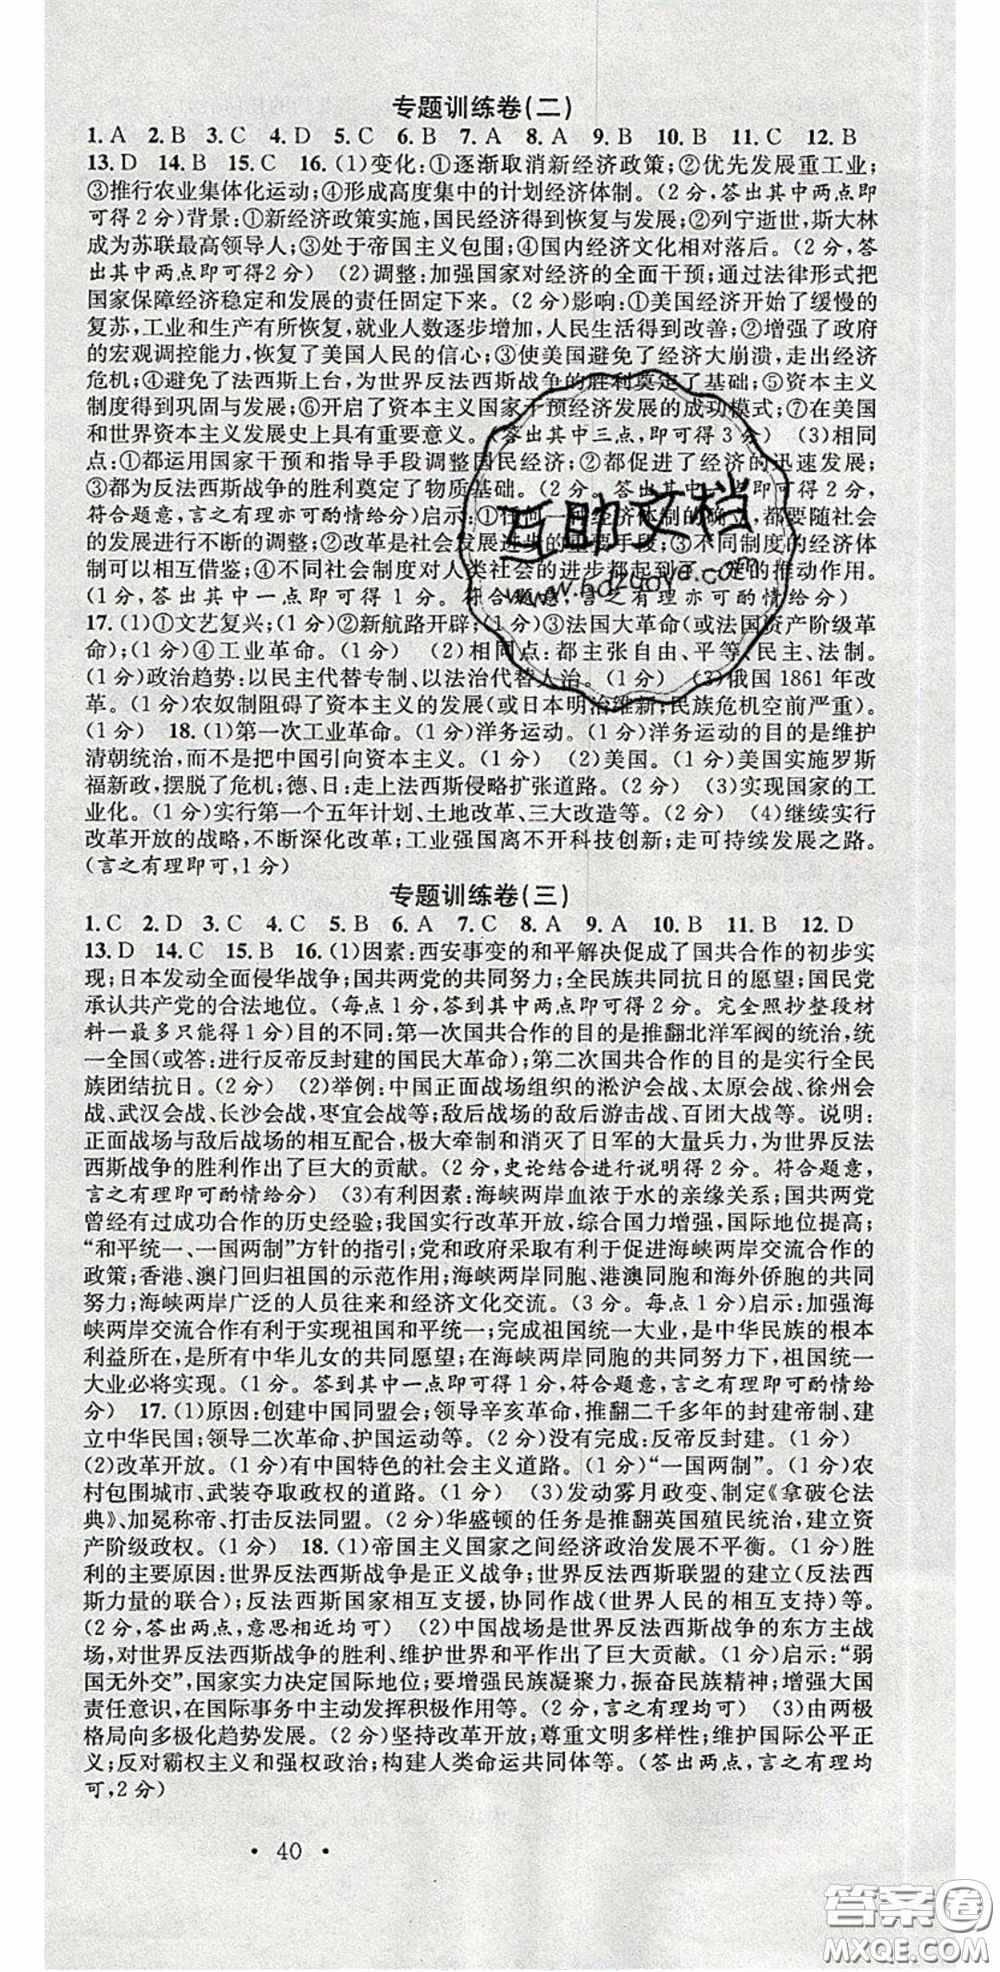 专题训练卷(二)
1.A 2.B 3.C 4.D 5.C 6.B 7.A 8.A 9.B 10.B 11.C 12.B
13.D 14.B 15.C 16.(1)变化:①逐渐取消新经济政策;②优先发展重工业;
③推行农业集体化运动;④形成高度集中的计划经济体制。(2分,答出其中两点即
可得2分)背景:①新经济政策实施,国民经济得到恢复与发展;②列宁逝世,斯大林
成为苏联最高领导人;③处于帝国主义包围;④国内经济文化相对落后。(2分,答
出其中两点即可得2分) (2)调整:加强国家对经济的全面干预;通过法律形式把
国家保障经济稳定和发展的责任固定下来。(2分)影响:①美国经济开始了缓慢的
复苏,工业和生产有所恢复,就业人数逐步增加,人民生活得到改善;②增强了政府
的宏观调控能力,恢复了美国人民的信心;③使美国避免了经济大崩溃,走出经济
危机;④避免了法西斯上台,为世界反法西斯战争的胜利奠定了基础;⑤资本主义
制度得到巩固与发展;⑥开启了资本主义国家干预经济发展的成功模式;⑦在美国
和世界资本主义发展史上具有重要意义。(答出其中三点,即可得3分) (3)相同
点:①都运用国家干预和指导手段调整国民经济;②都促进了经济的迅速发展;
③都为反法西斯战争的胜利奠定了物质基础。(2分,答出其中两点即可得2分,
符合题意,言之有理亦可酌情给分)启示:①任何一种经济体制的确立,都要随社会
的发展进行不断的调整;②改革是社会发展进步的重要手段;③不同制度的经济体
制可以相互借鉴;④不同社会制度对人类社会的进步都起到了一定的推动作用。
(1分,答出其中一点即可得1分。符合题意,言之有理亦可酌情给分)
17.(1)①文艺复兴;(1分)②新航路开辟;(1分)③法国大革命(或法国资产阶级革
命);(1分)④工业革命。(1分) (2)相同点:都主张自由、平等、民主、法制。
(1分)政治趋势:以民主代替专制、以法治代替人治。(1分) (3)俄国1861年改
革。(1分)农奴制阻碍了资本主义的发展(或日本明治维新;民族危机空前严重)。
(1分) 18.(1)第一次工业革命。(1分)洋务运动。(1分)洋务运动的目的是维护
清朝统治,而不是把中国引向资本主义。(1分) (2)美国。(1分)美国实施罗斯
福新政,摆脱了危机;德、日:走上法西斯侵略扩张道路。(2分) (3)实现国家的工
业化。(1分)实行第一个五年计划、土地改革、三大改造等。(2分) (4)继续实行
改革开放的战略,不断深化改革;工业强国离不开科技创新;走可持续发展之路。
(言之有理即可,1分)
专题训练卷(三)
1.C 2.D 3.C 4.C 5.B 6.A 7.C 8.A 9.A 10.B 11.B 12.D
13.D 14.C 15.B 16.(1)因素:西安事变的和平解决促成了国共合作的初步实
现;日本发动全面侵华战争;国共两党的共同努力;全民族共同抗日的愿望;国民党
承认共产党的合法地位。(每点1分,答到其中两点即可得2分。完全照抄整段材
料一最多只能得1分)目的不同:第一次国共合作的目的是推翻北洋军阀的统治,统
一全国(或答:进行反帝反封建的国民大革命);第二次国共合作的目的是实行全民
族团结抗日。(2分) (2)举例:中国正面战场组织的淞沪会战、太原会战、徐州会
战、武汉会战、长沙会战、枣宜会战等;敌后战场的敌后游击战、百团大战等。说明:
正面战场与敌后战场的相互配合,极大牵制和消灭了日军的大量兵力,为世界反法
西斯战争的胜利作出了巨大的贡献。(2分,史论结合进行说明得2分。符合题意,
言之有理即可酌情给分) (3)有利因素:海峡两岸血浓于水的亲缘关系;国共两党
曾经有过成功合作的历史经验;我国实行改革开放,综合国力增强,国际地位提高;
“和平统一、一国两制”方针的指引;党和政府采取有利于促进海峡两岸交流合作的
政策;香港、澳门回归祖国的示范作用;海峡两岸同胞、港澳同胞和海外侨胞的共同
努力;海峡两岸广泛的人员往来和经济文化交流。(3分。每点1分)启示:加强海
峡两岸交流合作有利于实现祖国和平统一;完成祖国统一大业,是中华民族的根本
利益所在,是所有中华儿女的共同愿望;在海峡两岸同胞的共同努力下,祖国统一
大业必将实现。(1分。答到其中一点即可得1分,符合题意,言之有理即可酌情给
分) 17.(1)原因:创建中国同盟会;领导辛亥革命,推翻二千多年的封建帝制、建
立中华民国;领导二次革命、护国运动等。(2分)没有完成:反帝反封建。(1分)
(2)改革开放。(1分)有中国特色的社会主义道路。(1分)“一国两制”。(1分)农
村包围城市、武装夺取政权的道路。(1分) (3)发动雾月政变、制定《拿破仑法
典》、加冕称帝、打击反法同盟。(2分)华盛顿的任务是推翻英国殖民统治,建立资
产阶级政权。(1分) 18.(1)帝国主义国家之间经济政治发展不平衡。(1分)胜
利的主要原因:世界反法西斯战争是正义战争;世界反法西斯联盟的建立(反法西
斯力量的联合);反法西斯国家相互支援,协同作战(世界人民的相互支持)等。
(2分,答出两点,意思相近均可) (2)中国战场是世界反法西斯战争的东方主战
场,对世界反法西斯战争的胜利、维护世界和平作出了巨大贡献。(1分)启示:“弱
国无外交”,国家实力决定国际地位;要增强民族凝聚力,振奋民族精神;增强大国
责任意识,在国际事务中主动发挥积极作用等。(2分,言之有理均可) (3)由两极
格局向多极化趋势发展。(2分)坚持改革开放;尊重文明多样性;维护国际公平正
义;反对霸权主义和强权政治;构建人类命运共同体等。(答出两点,言之有理均
可,2分)
· 40 ·
互助文档
www.hdzuoye.com
答案圈
MXQE.COM